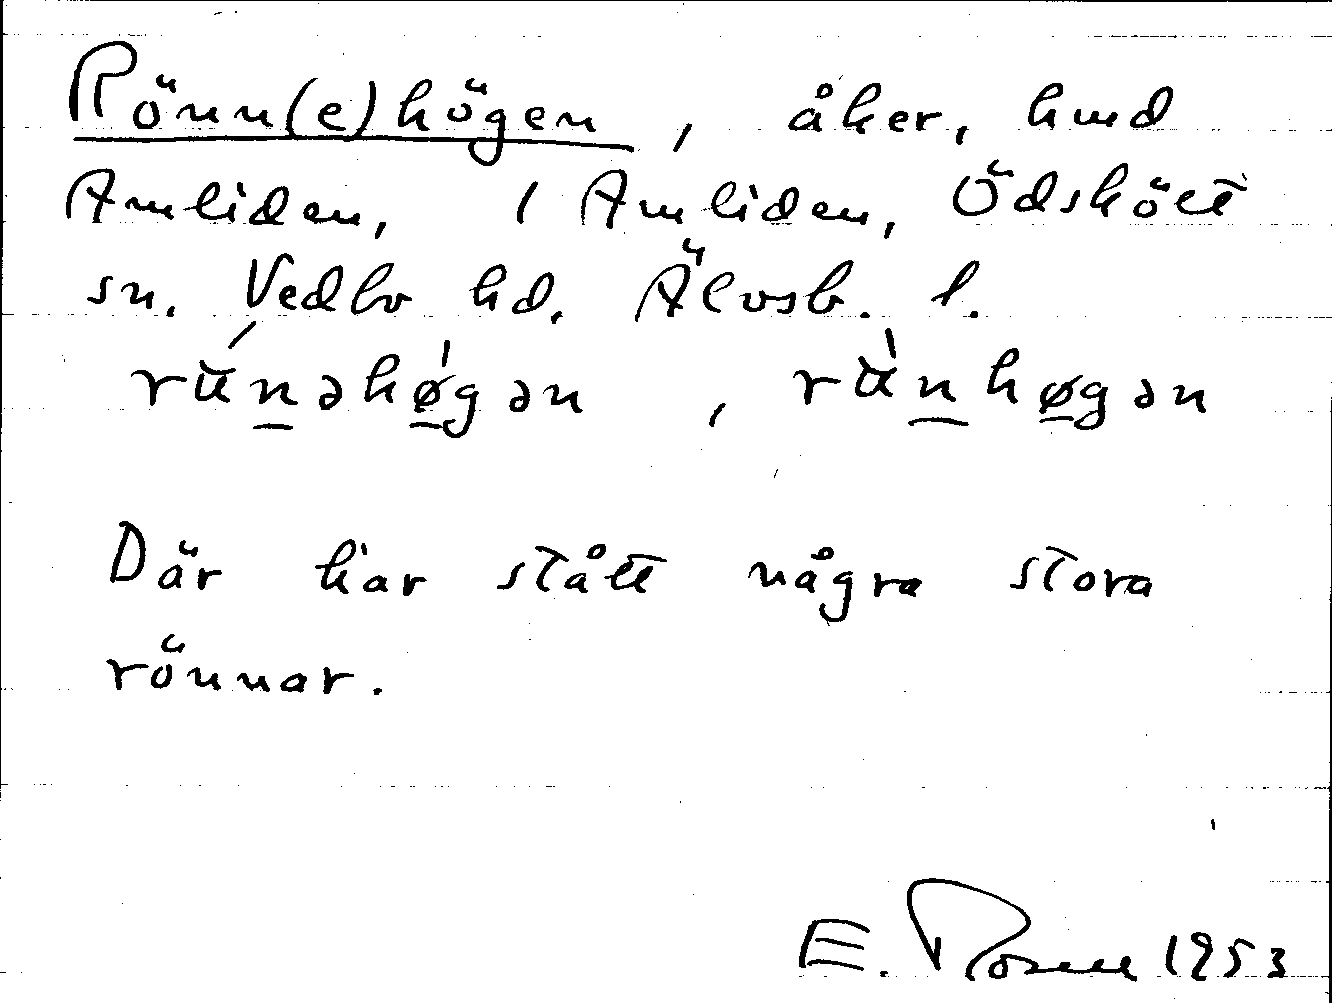 Rönn(e)högen, åker, hmd
Amliden, 1 Amliden, Ödskölt
sn. Vedbo hd. Älvsb. l.
rʉ́nəhø̀gən, rʉ̀nhøgən
Där har stått några stora
rönnar.
E. Rosell 1953